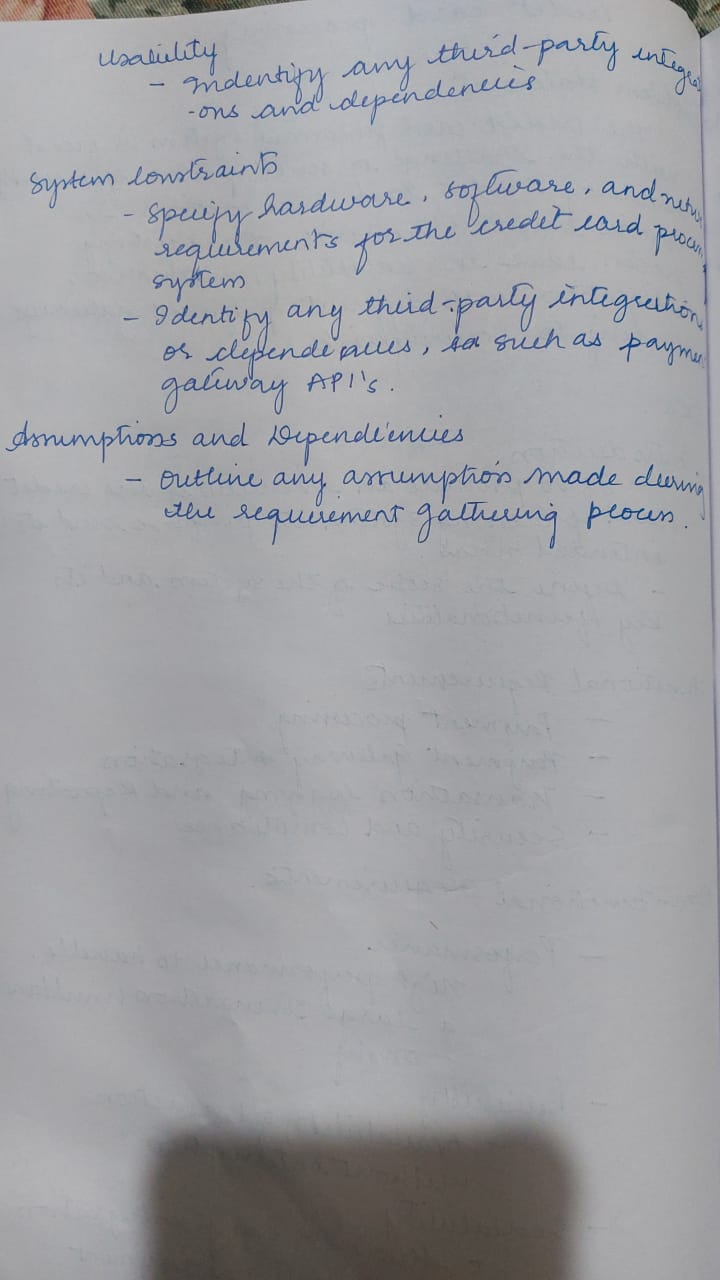 Usability
- Indentify any third-party integrati
-ons and dependencies
System Constraints
- Specify hardware, software, and
requirements for the credit card
system
- Identify any third-party integration
or dependencies, such as
gateway API's.
Assumptions and Dependencies
- Outline any assumptions made during
the requirement gathering process.